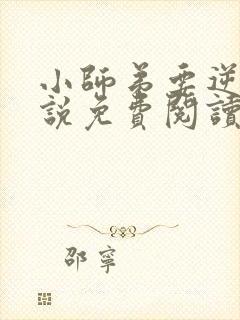 小師弟要逆
說免費閱讀
邵寧